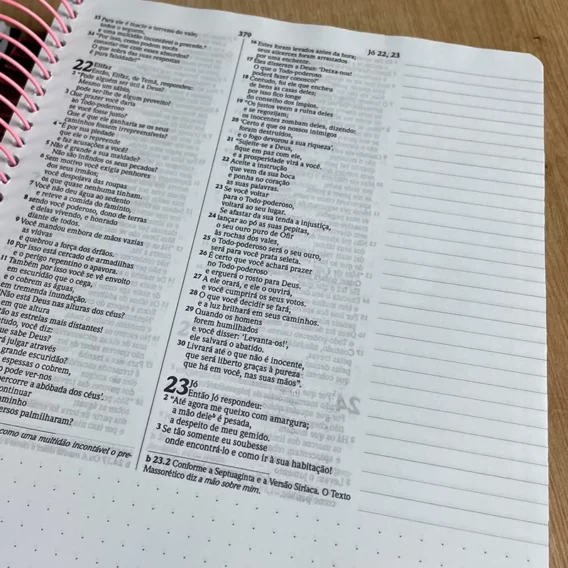 33 Para ele é macio o terreno do vale;
todos o seguem,
e uma multidão incontável o precede.ᵃ
34 "Por isso, como podem vocês
consolar-me com esses absurdos?
O que sobra das suas respostas
é pura falsidade!"
22 Elifaz
Então, Elifaz, de Temã, respondeu:
2 "Pode alguém ser útil a Deus?
Mesmo um sábio,
pode ser-lhe de algum proveito?
3 Que prazer você daria
ao Todo-poderoso
se você fosse justo?
Que é que ele ganharia se os seus
caminhos fossem irrepreensíveis?
4 "É por sua piedade
que ele o repreende
e faz acusações a você?
5 Não é grande a sua maldade?
Não são infindos os seus pecados?
6 Sem motivo você exigia penhores
dos seus irmãos;
você despojava das roupas
os que quase nenhuma tinham.
7 Você não deu água ao sedento
e reteve a comida do faminto,
8 sendo você poderoso, dono de terras
e delas vivendo, e honrado
diante de todos.
9 Você mandou embora de mãos vazias
as viúvas
e quebrou a força dos órfãos.
10 Por isso está cercado de armadilhas
e o perigo repentino o apavora.
11 Também por isso você se vê envolto
em escuridão que o cega,
e o cobrem as águas,
em tremenda inundação.
Não está Deus nas alturas dos céus?
em que altura
as estrelas mais distantes!
tudo, você diz:
que sabe Deus?
julgar através
grande escuridão?
espessas o cobrem,
pode ver-nos
percorre a abóbada dos céus'.
continuar
caminho
perversos palmilharam?
como uma multidão incontável o pre-
379
Jó 22, 23
16 Estes foram levados antes da hora;
seus alicerces foram arrastados
por uma enchente.
17 Eles disseram a Deus: 'Deixa-nos!
O que o Todo-poderoso
poderá fazer conosco?'
18 Contudo, foi ele que encheu
de bens as casas deles;
por isso fico longe
do conselho dos ímpios.
19 "Os justos veem a ruína deles
e se regozijam;
os inocentes zombam deles, dizendo:
20 'Certo é que os nossos inimigos
foram destruídos,
e o fogo devorou a sua riqueza'.
21 "Sujeite-se a Deus,
fique em paz com ele,
e a prosperidade virá a você.
22 Aceite a instrução
que vem da sua boca
e ponha no coração
as suas palavras.
23 Se você voltar
para o Todo-poderoso,
voltará ao seu lugar.
Se afastar da sua tenda a injustiça,
24 lançar ao pó as suas pepitas,
o seu ouro puro de Ofir
às rochas dos vales,
25 o Todo-poderoso será o seu ouro,
será para você prata seleta.
26 É certo que você achará prazer
no Todo-poderoso
e erguerá o rosto para Deus.
27 A ele orará, e ele o ouvirá,
e você cumprirá os seus votos.
28 O que você decidir se fará,
e a luz brilhará em seus caminhos.
29 Quando os homens
forem humilhados
e você disser: 'Levanta-os!',
ele salvará o abatido.
30 Livrará até o que não é inocente,
que será liberto graças à pureza
que há em você, nas suas mãos".
23 Jó
Então Jó respondeu:
2 "Até agora me queixo com amargura;
a mão deleᵇ é pesada,
a despeito de meu gemido.
3 Se tão somente eu soubesse
onde encontrá-lo e como ir à sua habitação!
b 23.2 Conforme a Septuaginta e a Versão Siríaca. O Texto
Massorético diz a mão sobre mim.